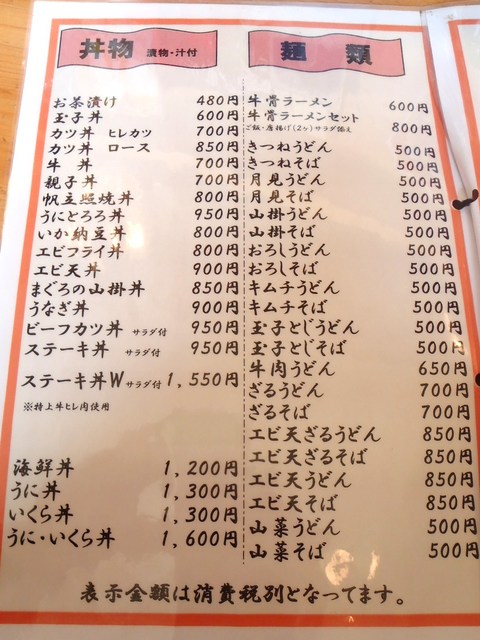 丼物 漬物・汁付
お茶漬け 480円
玉子丼 600円
カツ丼 ヒレカツ 700円
カツ丼 ロース 850円
牛丼 700円
親子丼 700円
帆立照焼丼 800円
うにとろろ丼 950円
いか納豆丼 800円
エビフライ丼 800円
エビ天丼 900円
まぐろの山掛丼 850円
うなぎ丼 900円
ビーフカツ丼 サラダ付 950円
ステーキ丼 サラダ付 950円
ステーキ丼W サラダ付 1,550円
※特上牛ヒレ肉使用
海鮮丼 1,200円
うに丼 1,300円
いくら丼 1,300円
うに・いくら丼 1,600円
麺類
牛骨ラーメン 600円
牛骨ラーメンセット
ご飯・唐揚げ(2ヶ)サラダ添え 800円
きつねうどん 500円
きつねそば 500円
月見うどん 500円
月見そば 500円
山掛うどん 500円
山掛そば 500円
おろしうどん 500円
おろしそば 500円
キムチうどん 500円
キムチそば 500円
玉子とじうどん 500円
玉子とじそば 500円
牛肉うどん 650円
ざるうどん 700円
ざるそば 700円
エビ天ざるうどん 850円
エビ天ざるそば 850円
エビ天うどん 850円
エビ天そば 850円
山菜うどん 500円
山菜そば 500円
表示金額は消費税別となってます。